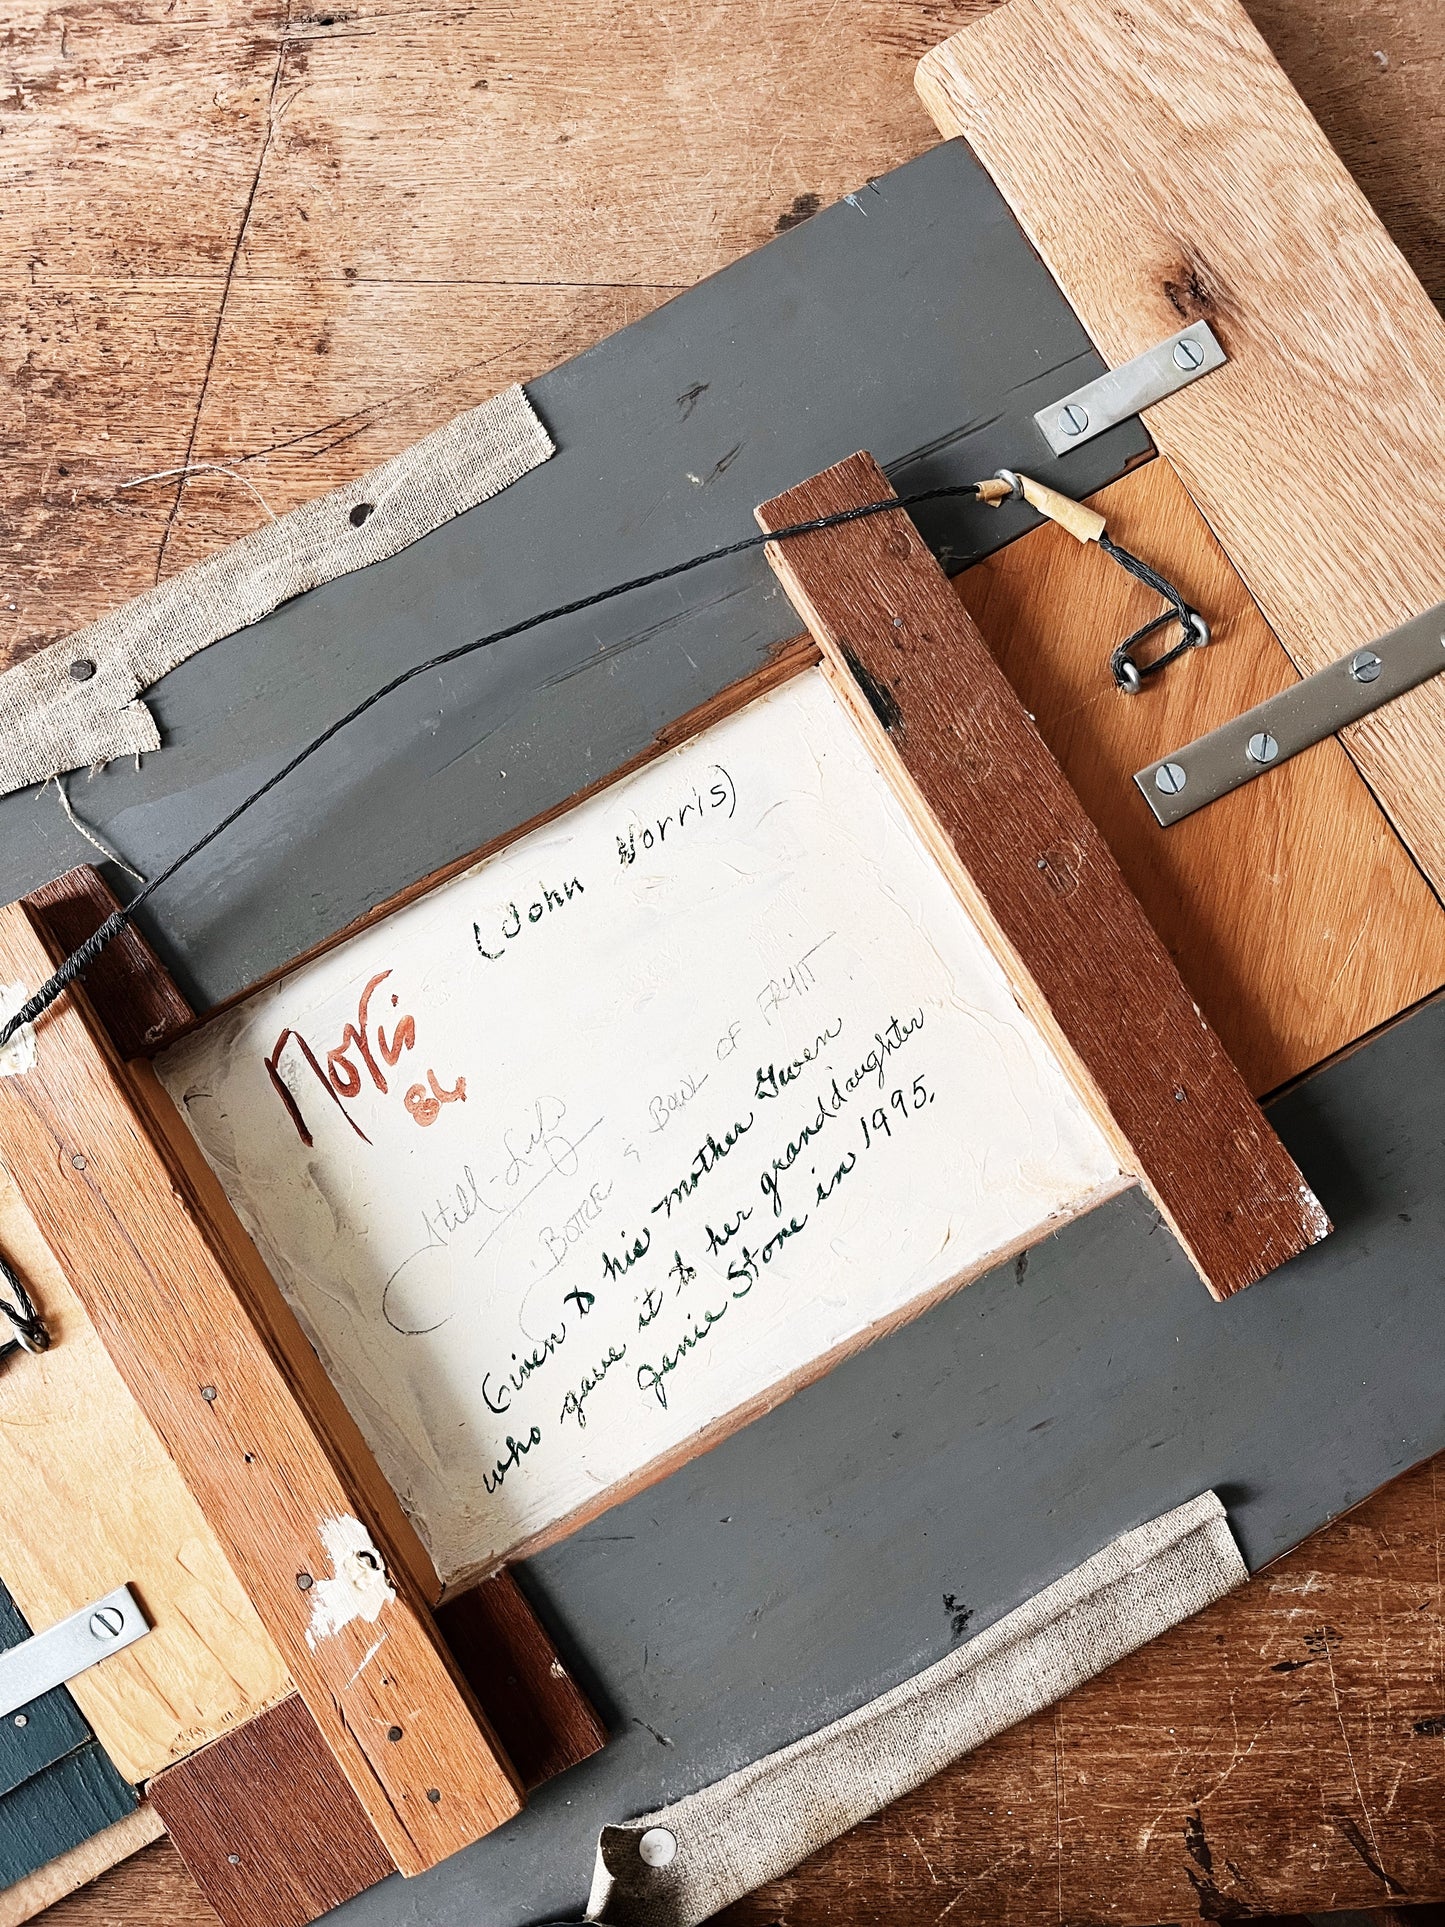 (John Norris)
Norris
84
Still-Life
Bottle & Bowl OF FRUIT
Given to his mother Gwen
who gave it to her granddaughter
Janie Stone in 1995.